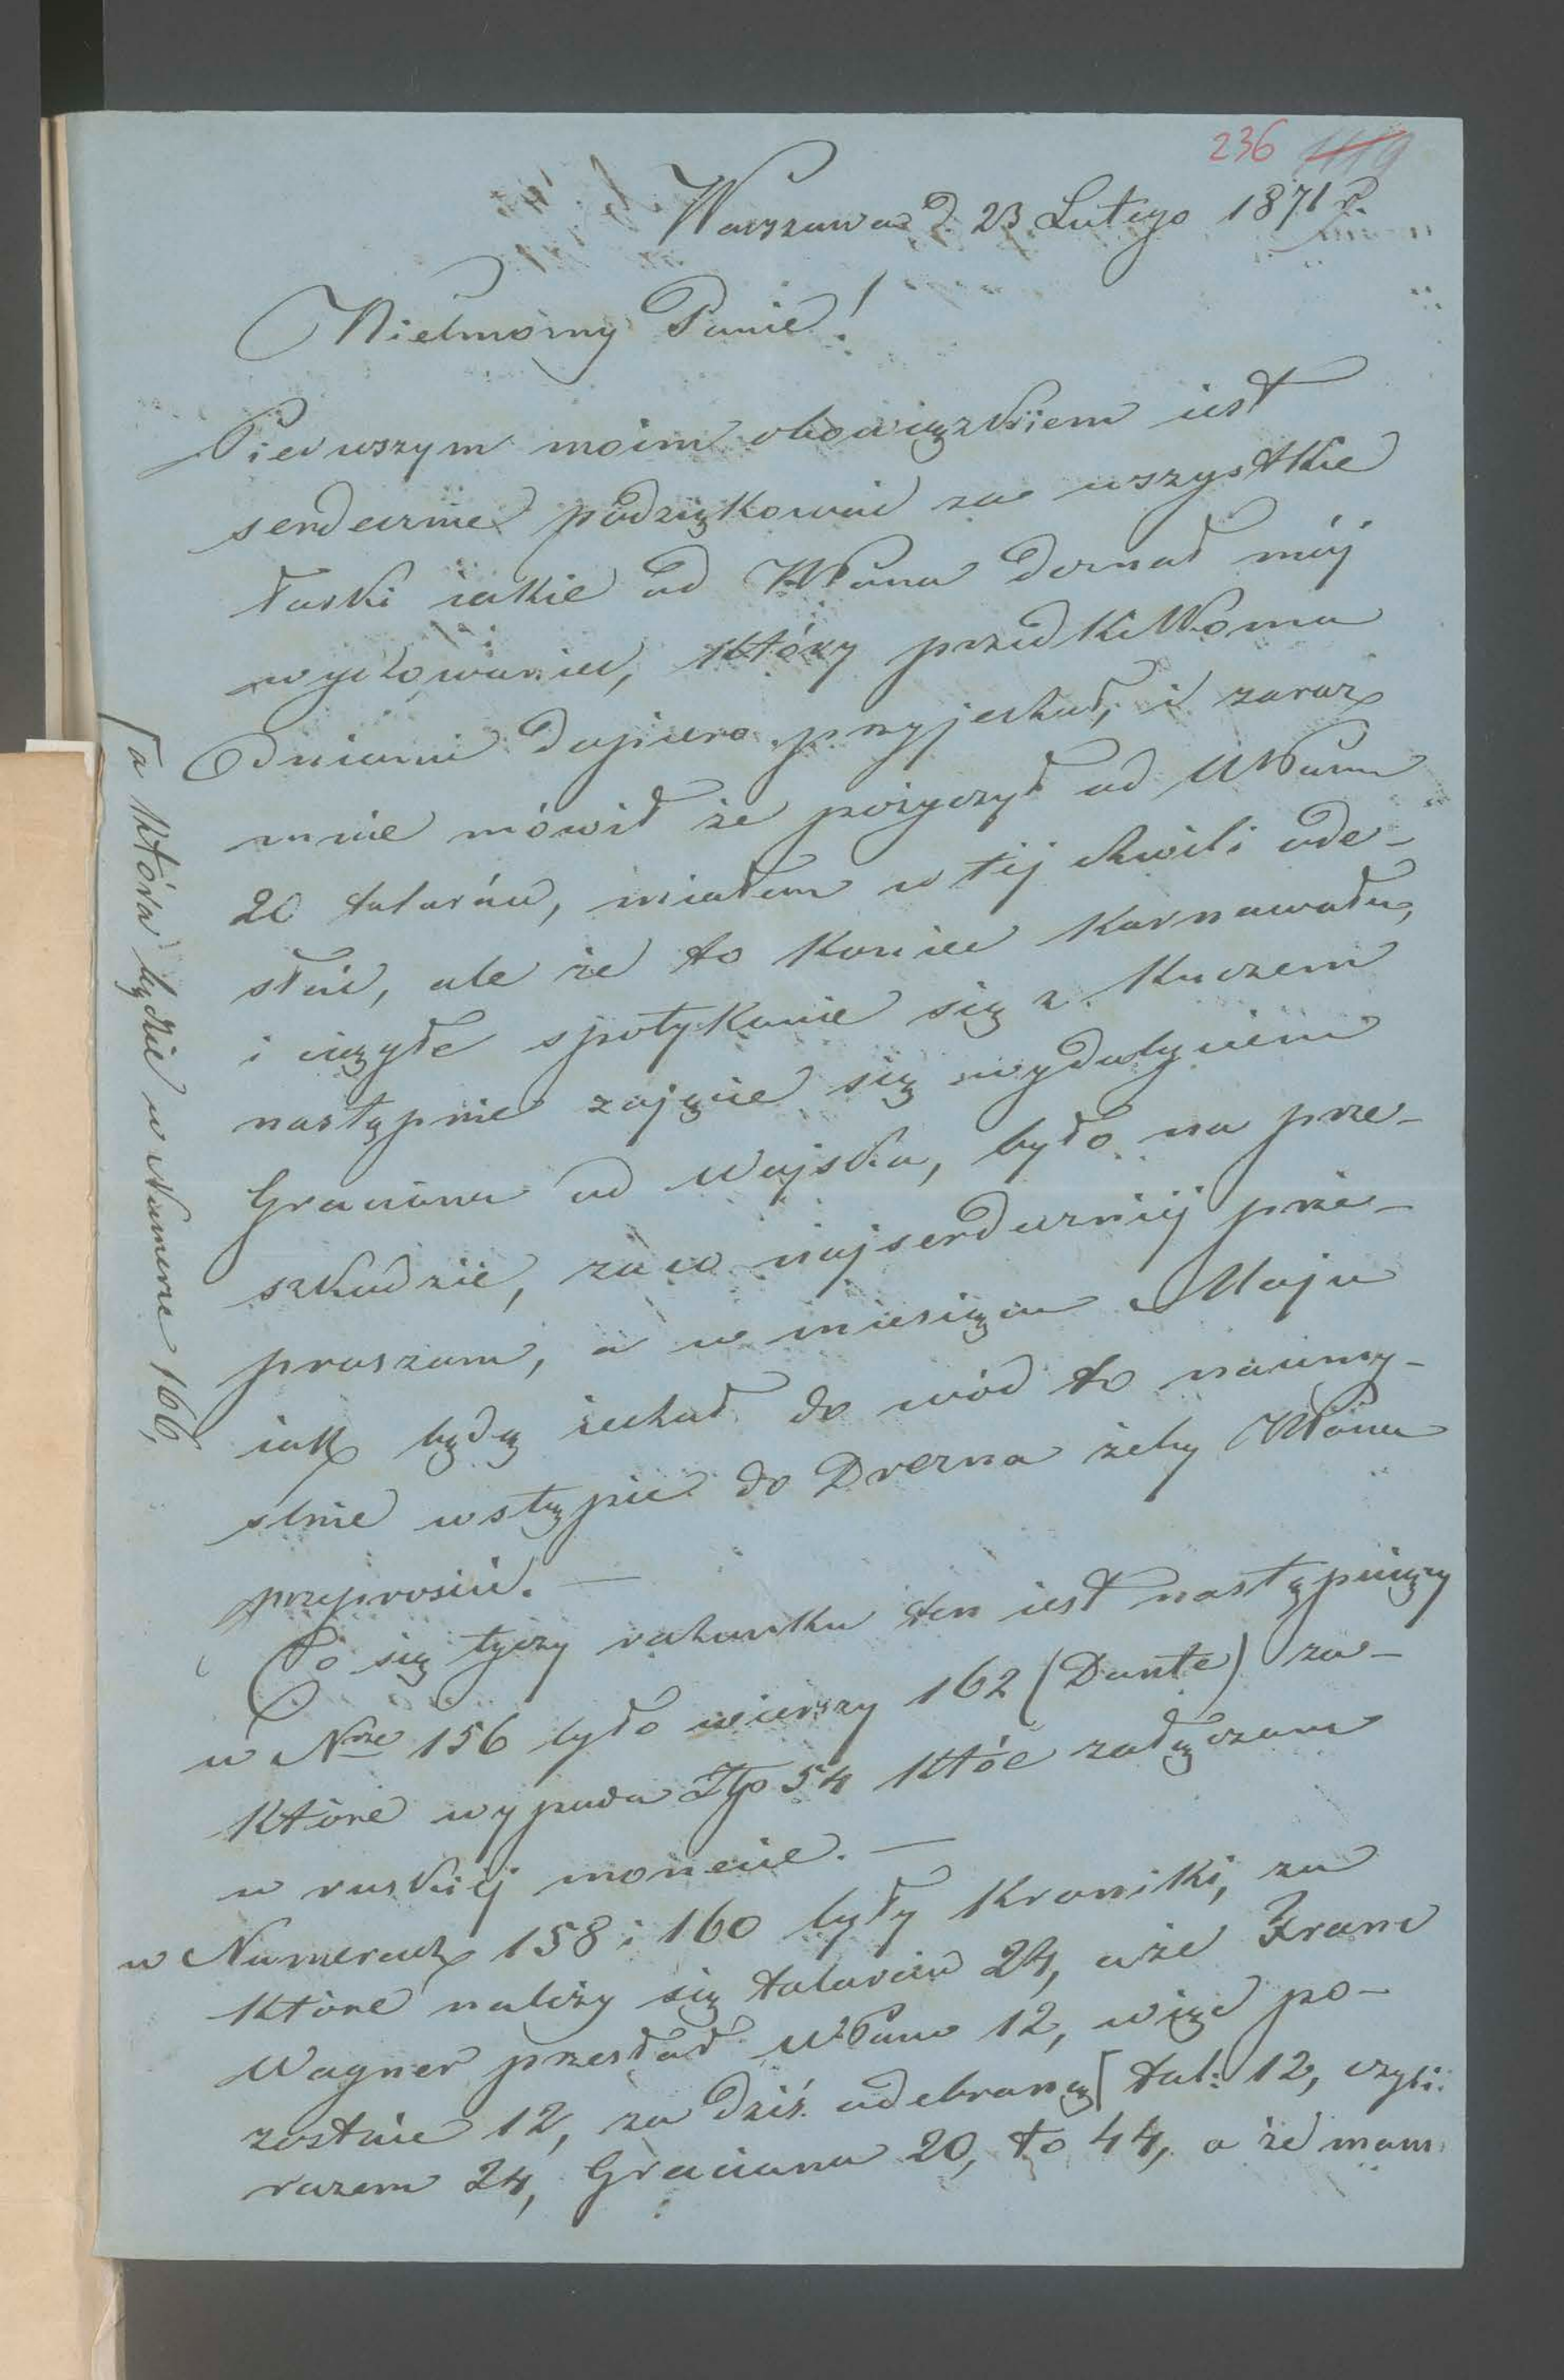 236 1119
Warszawa d. 23 Lutego 1871 r.
Wielmożny Panie!
Pierwszym moim obowiązkiem iest
serdecznie podziękować za wszystkie
łaski iakie od WPana doznał mój
wychowaniec, który przed kilkoma
dniami dopiero przyjechał, i zaraz
mnie mówił że pożyczył od WPana
20 talarów, miałem w tej chwili ode-
słać, ale że to koniec karnawału,
i ciągłe spotykanie się z Kuczem
następnie zajęcie się wydobyciem
Graciana od wojska, było na prze-
szkodzie, za co najserdeczniej prze-
praszam, a w miesiącu Maju
iak będę iechał do wód to naumy-
ślnie wstąpię do Drezna żeby WPana
przeprosić. —
Co się tyczy rachunku ten iest następuiący
w Nrze 156 było wierszy 162 (Dante) za-
które wypada Złp 54 któe załączam
w ruskiej monecie. —
w Numerach 158 i 160 były Kroniki, za
które należy się talarów 24, a że Franc
Wagner przesłał WPanu 12, więc po-
zostaie 12, za dziś odebraną [ tal: 12, czyli
razem 24, Graciana 20, to 44, a że mam
[ a która będzie w Numerze 166,